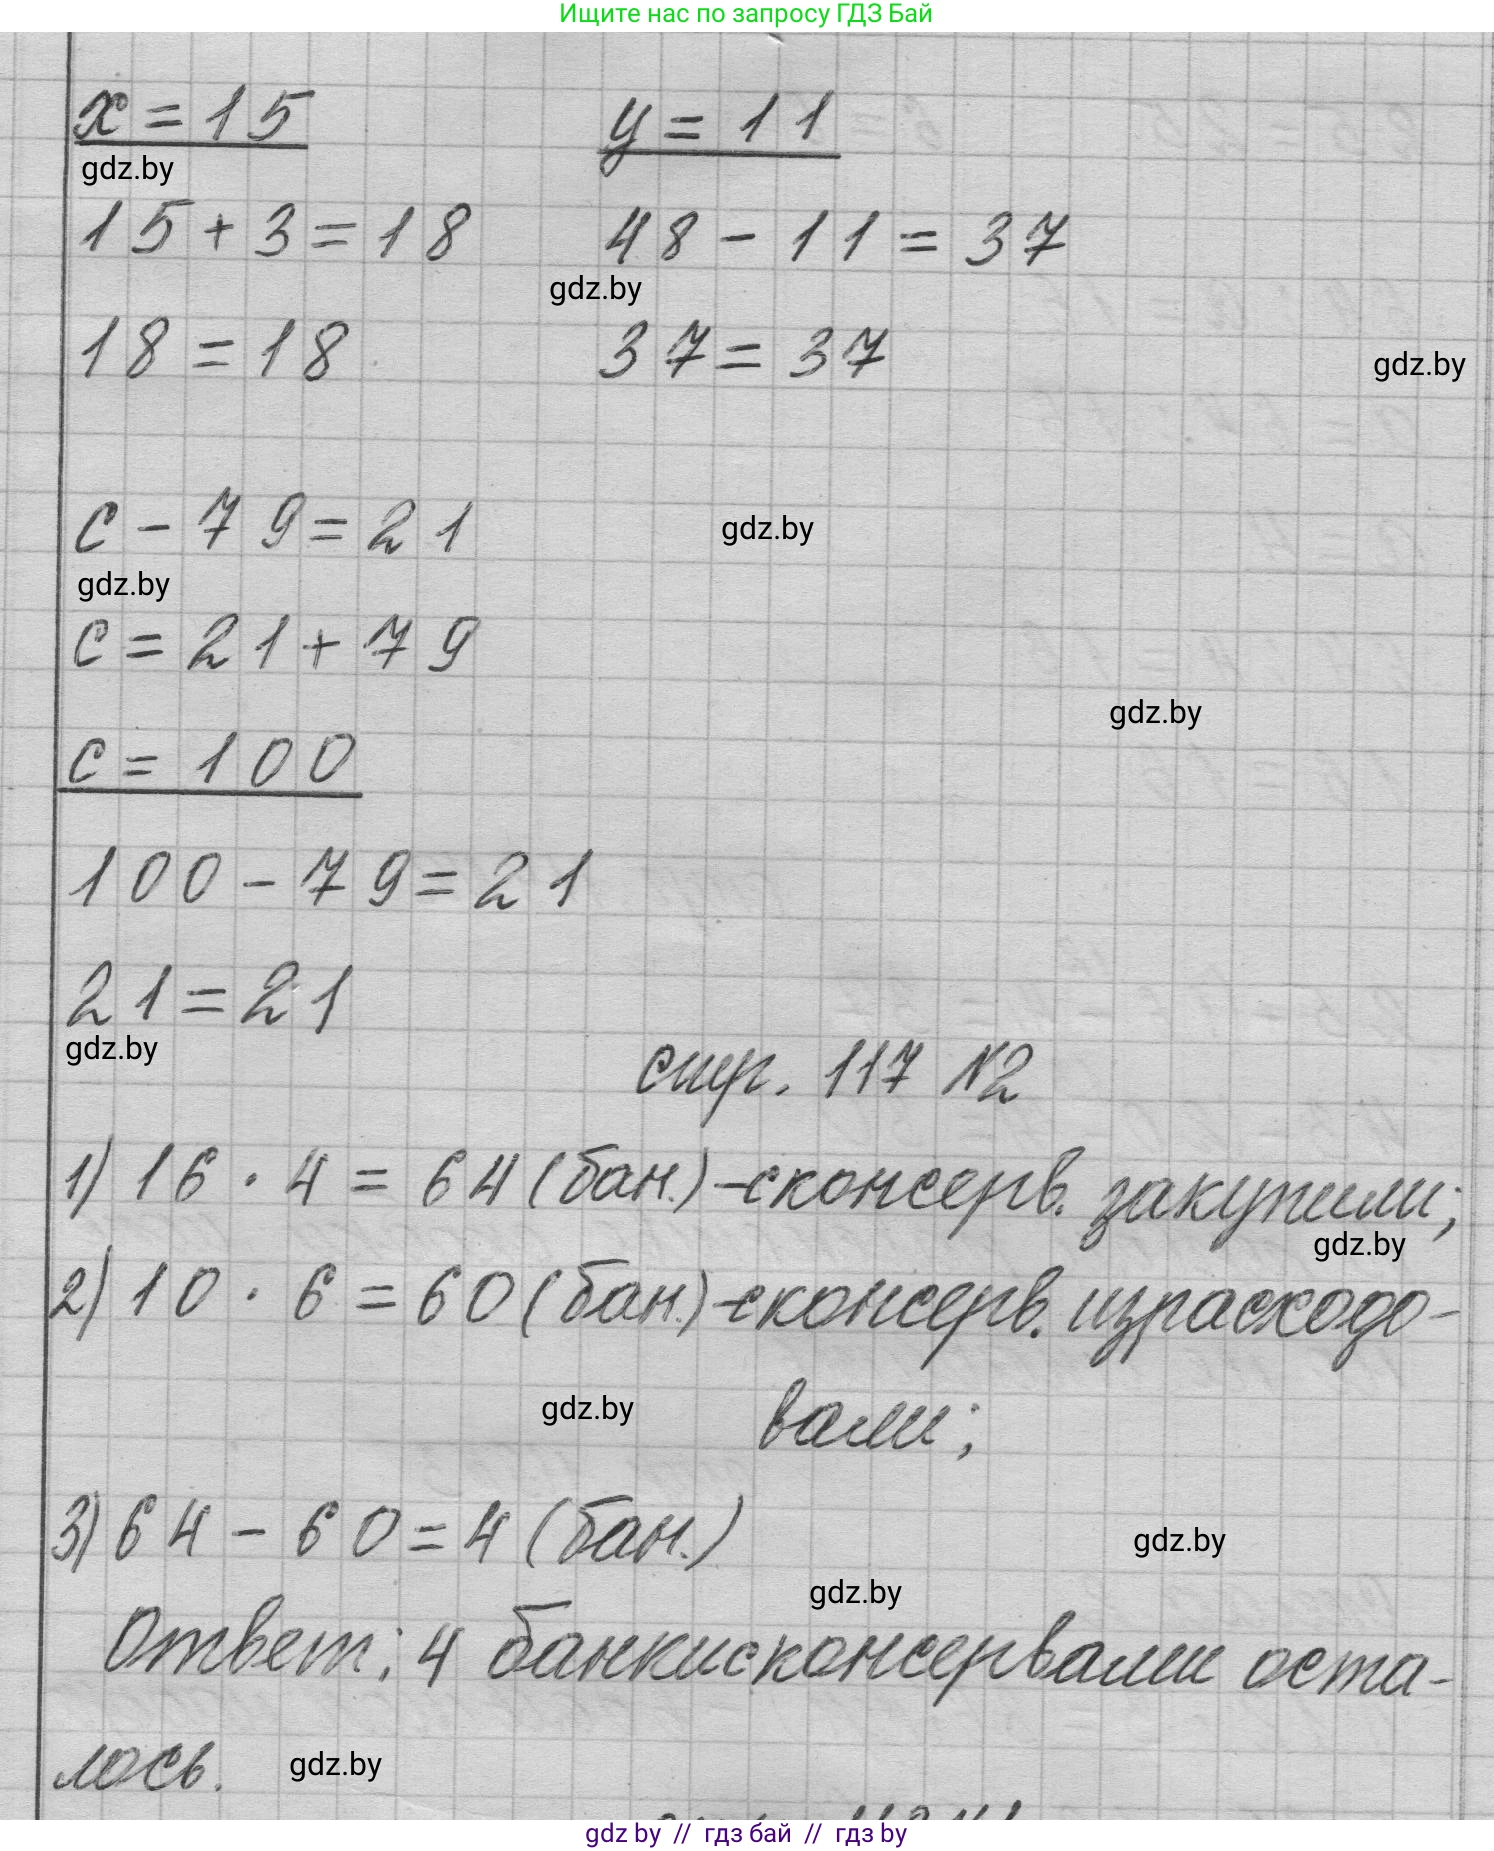 Ищите нас по запросу ГДЗ Бай
x = 15 y = 11
gdz.by
15 + 3 = 18 48 - 11 = 37
gdz.by
18 = 18 37 = 37
gdz.by
c - 79 = 21
gdz.by
gdz.by
c = 21 + 79
gdz.by
c = 100
100 - 79 = 21
21 = 21
gdz.by
стр. 117 №2
1) 16 · 4 = 64 (бан.) - с консерв. закупили;
gdz.by
2) 10 · 6 = 60 (бан.) - с консерв. израсходо-
gdz.by
вали;
3) 64 - 60 = 4 (бан.)
gdz.by
gdz.by
Ответ: 4 банки с консервами оста-
лось.
gdz.by
gdz by // гдз бай // гдз by